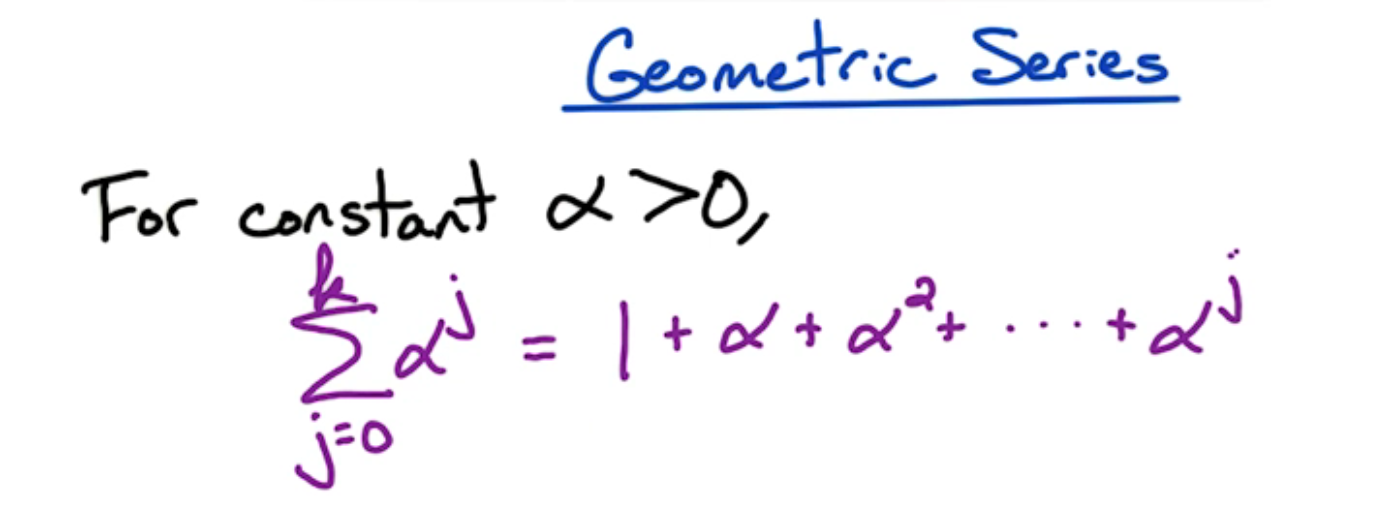 Geometric Series
For constant α > 0,
$\sum_{j=0}^{k} α^j = 1 + α + α^2 + \cdots + α^j$